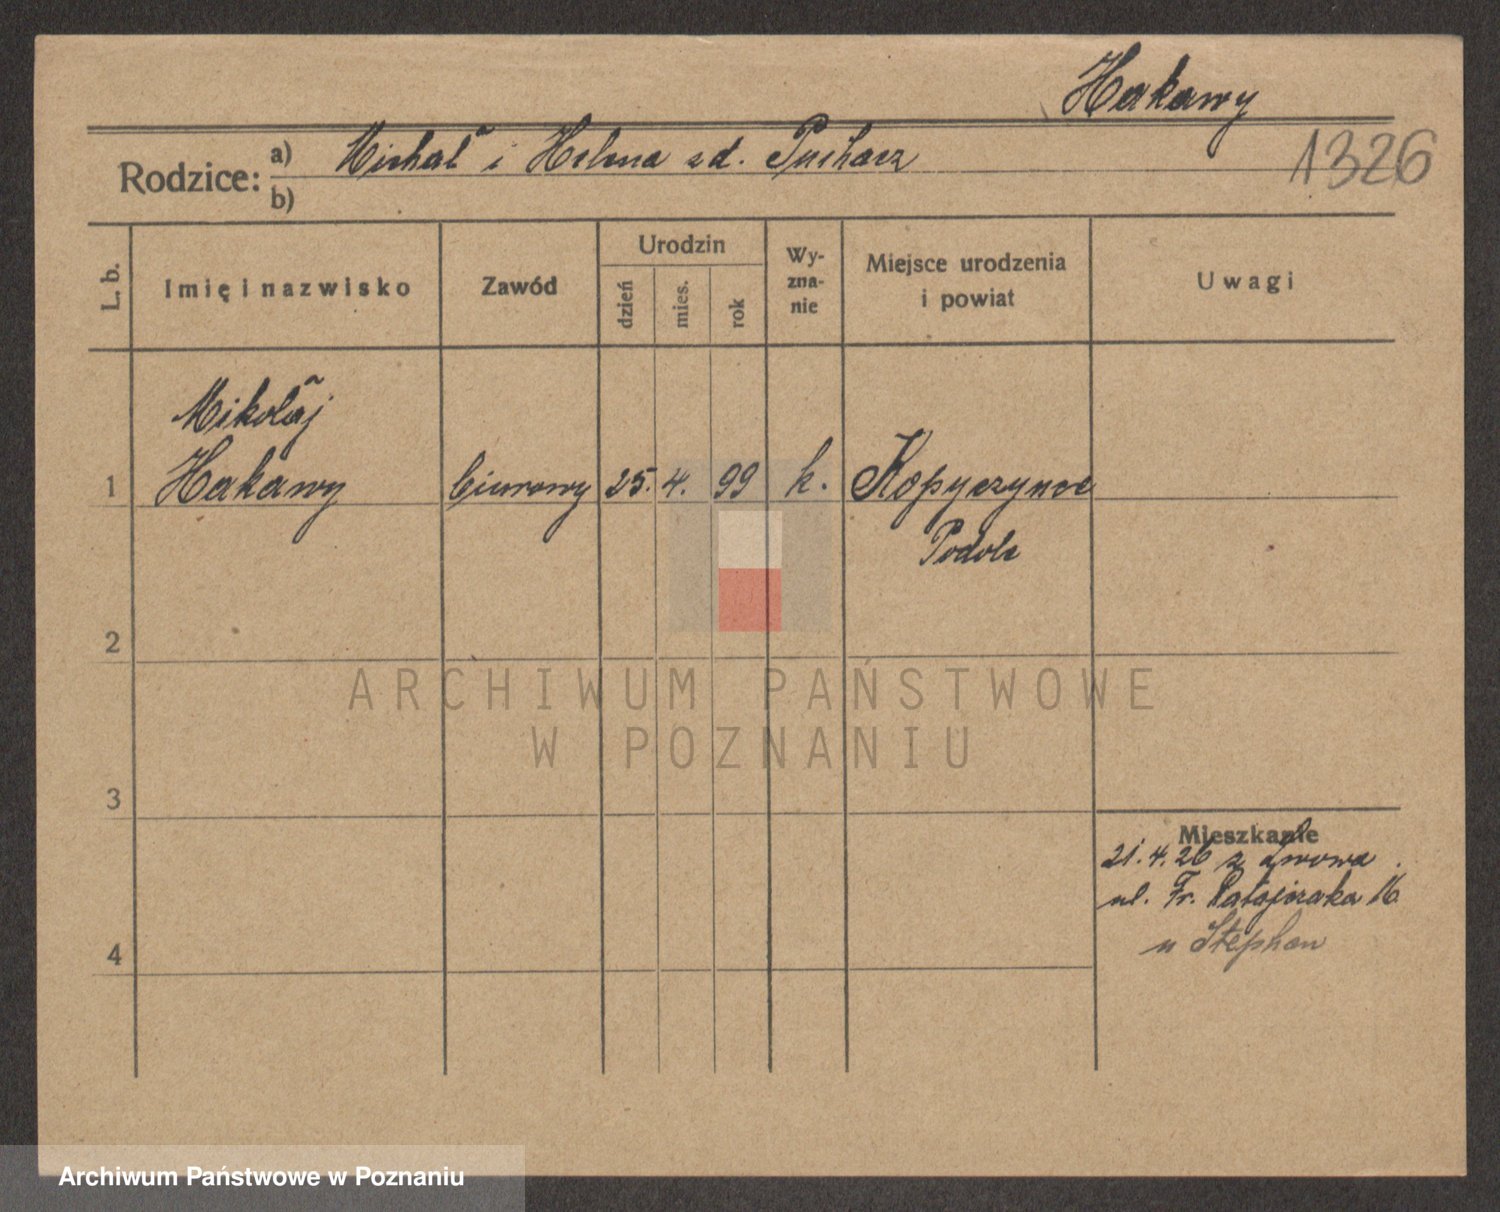 Hakawy
1326
Rodzice: a) Michał i Helena zd. Puchacz
b)
L. b.
Imię i nazwisko
Zawód
Urodzin
dzień
mies.
rok
Wy-
zna-
nie
Miejsce urodzenia
i powiat
Uwagi
Mikołaj
1 Hakawy biurowy 25. 4. 99 k. Kopyczynce
Podole
2
ARCHIWUM PAŃSTWOWE
W POZNANIU
3
Mieszkanie
21.4.26 z Lwowa
ul. Fr. Ratajczaka 16
u Stephan
4
Archiwum Państwowe w Poznaniu